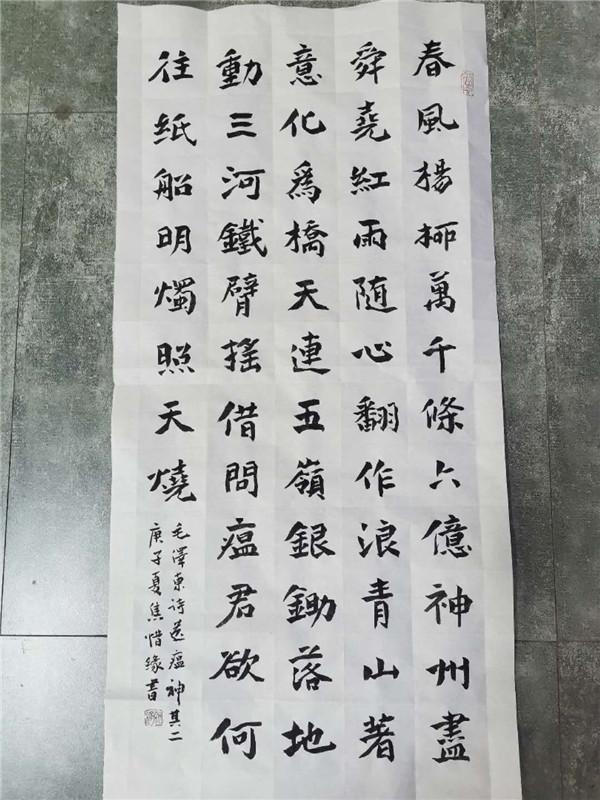 春風楊柳萬千條六億神州盡
舜堯紅雨随心翻作浪青山著
意化為橋天連五嶺銀鋤落地
動三河鐵臂搖借問瘟君欲何
往紙船明燭照天燒
毛澤東诗送瘟神其二
庚子夏焦惜缘書